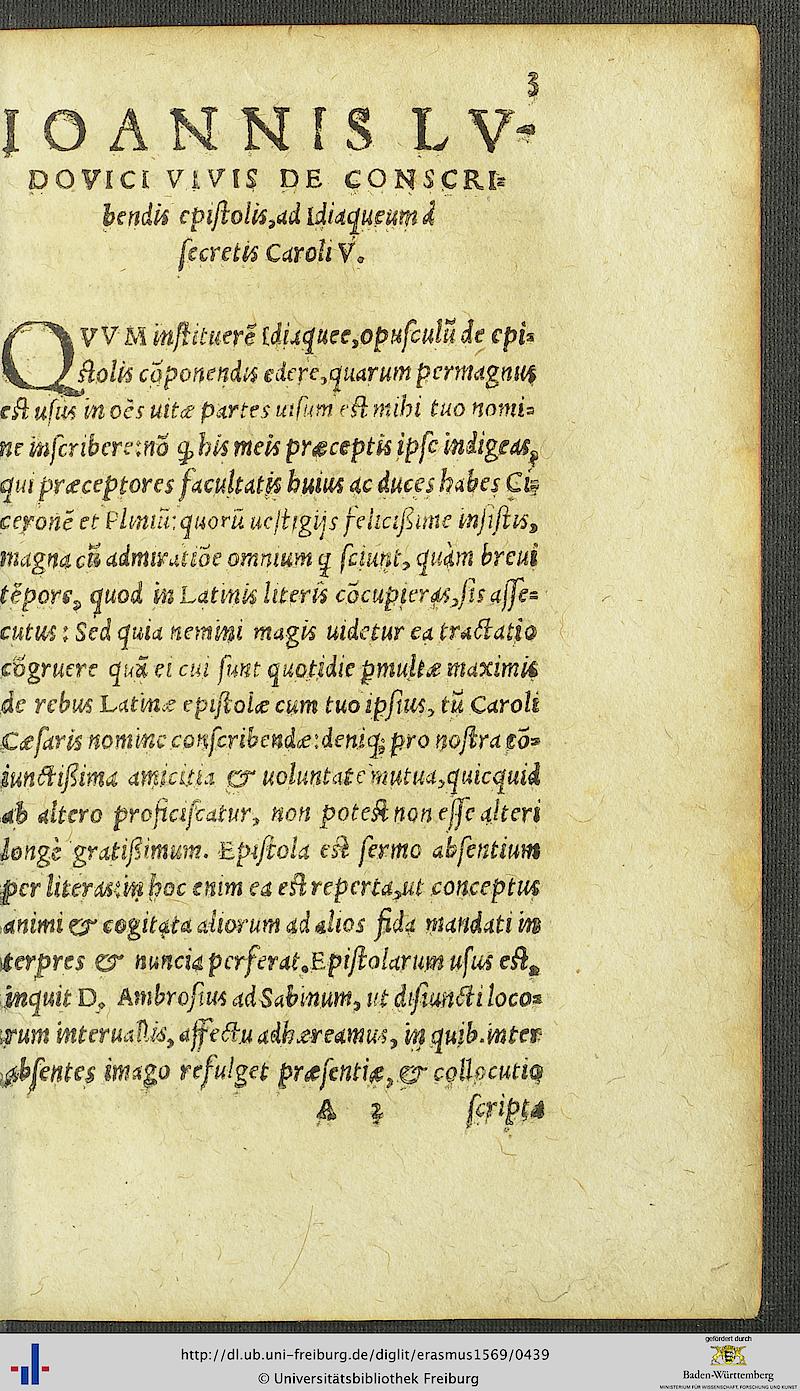 3
IOANNIS LV-
DOVICI VIVIS DE CONSCRI-
bendis epistolis, ad Idiaqueum à
secretis Caroli V.
QVVM instituerẽ Idiaquee, opusculũ de epi-
stolis cõponendis edere, quarum permagnus
est usus in oẽs uitæ partes uisum est mihi tuo nomi-
ne inscribere: nõ ꝙ his meis præceptis ipse indigeas,
qui præceptores facultatis huius ac duces habes Ci-
ceronẽ et Pliniũ: quorũ uestigijs felicißime insistis,
magna cũ admiratiõe omnium q sciunt, quàm breui
tẽpore, quod in Latinis literis cõcupieras, sis asse-
cutus: Sed quia nemini magis uidetur ea tractatio
cõgruere quã ei cui sunt quotidie ꝑmultæ maximis
de rebus Latinæ epistolæ cum tuo ipsius, tũ Caroli
Cæsaris nomine conscribendæ: deniqꝫ pro nostra cõ-
iunctißima amicitia & uoluntate mutua, quicquid
ab altero proficiscatur, non potest non esse alteri
longè gratißimum. Epistola est sermo absentium
per literas: in hoc enim ea est reperta, ut conceptus
animi & cogitata aliorum ad alios fida mandati in
terpres & nuncia perferat. Epistolarum usus est,
inquit D. Ambrosius ad Sabinum, ut disiuncti loco-
rum interuallis, affectu adhæreamus, in quib. inter
absentes imago refulget præsentiæ, & collocutio
A 2 scripta
http://dl.ub.uni-freiburg.de/diglit/erasmus1569/0439
© Universitätsbibliothek Freiburg
gefördert durch
Baden-Württemberg
MINISTERIUM FÜR WISSENSCHAFT, FORSCHUNG UND KUNST